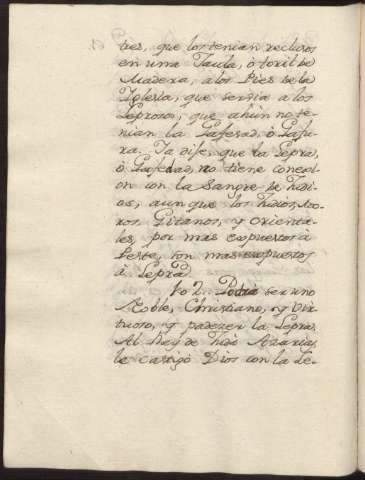 tres, que los tenian reclusos
en una Jaula, ò toril de
Madera, a los Pies de la
Iglesia, que servia a los
Leprosos, que ahùn no te-
nian la Gafedad, ò Gafu-
ra. Ja dije, que la Lepra,
ò Gafedad, no tiene conexi-
on con la Sangre de Judi-
os, aunque los Judios, Mo-
ros, Gitanos, y Orienta-
les, por mas expuestos à
Peste, son mas expuestos
à Lepra.
102. Podrà ser uno
Noble, Christiano, y Vir-
tuoso, y padezer la Lepra.
Al Rey de Judà Azarias,
le castigò Dios con la Le-